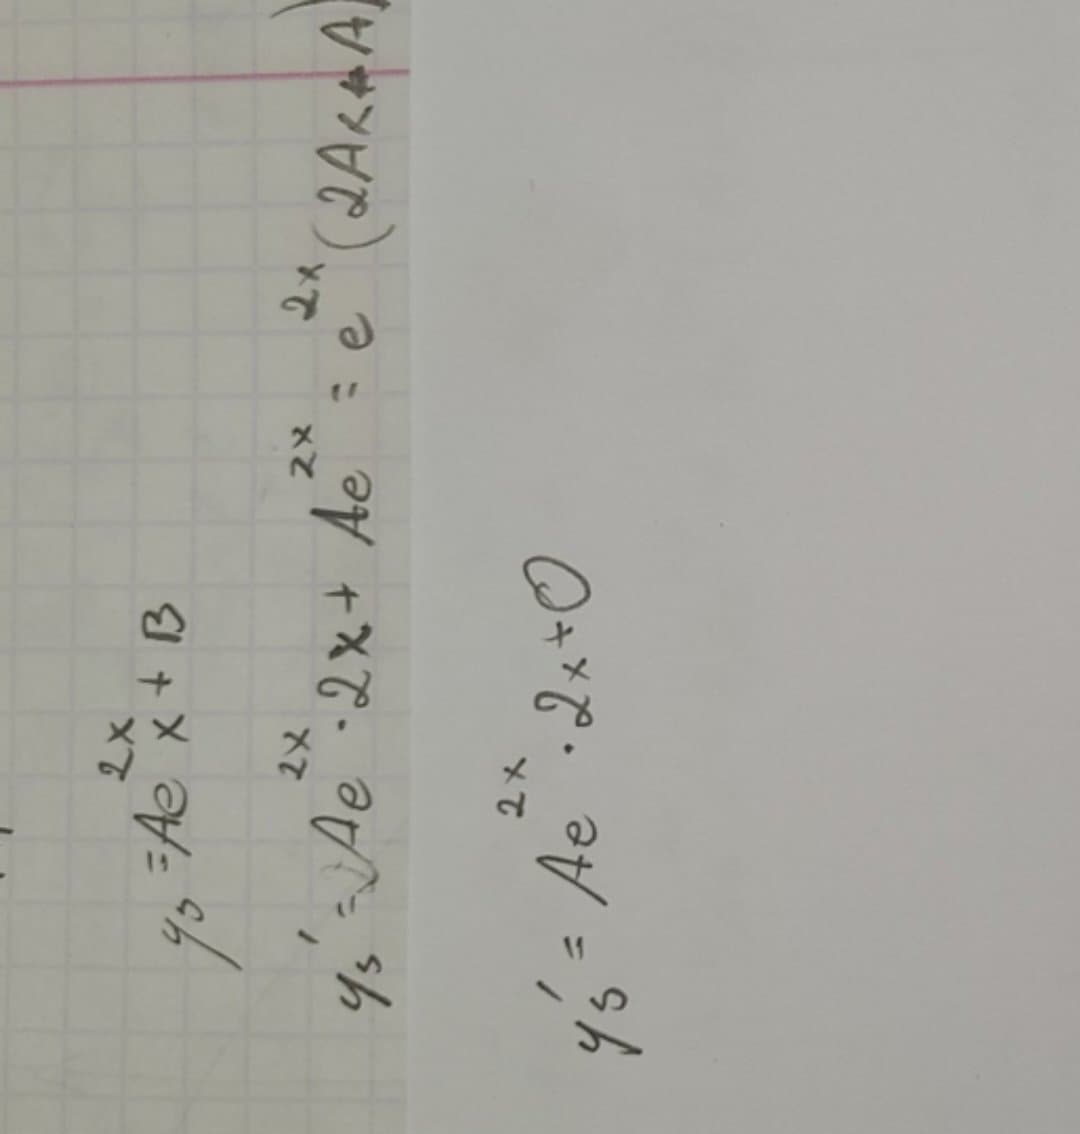 y₅ = Ae^{2x} x + B
y₅' = Ae^{2x} · 2x + Ae^{2x} = e^{2x} (2Ax + A)
y₅' = Ae^{2x} · 2x + 0